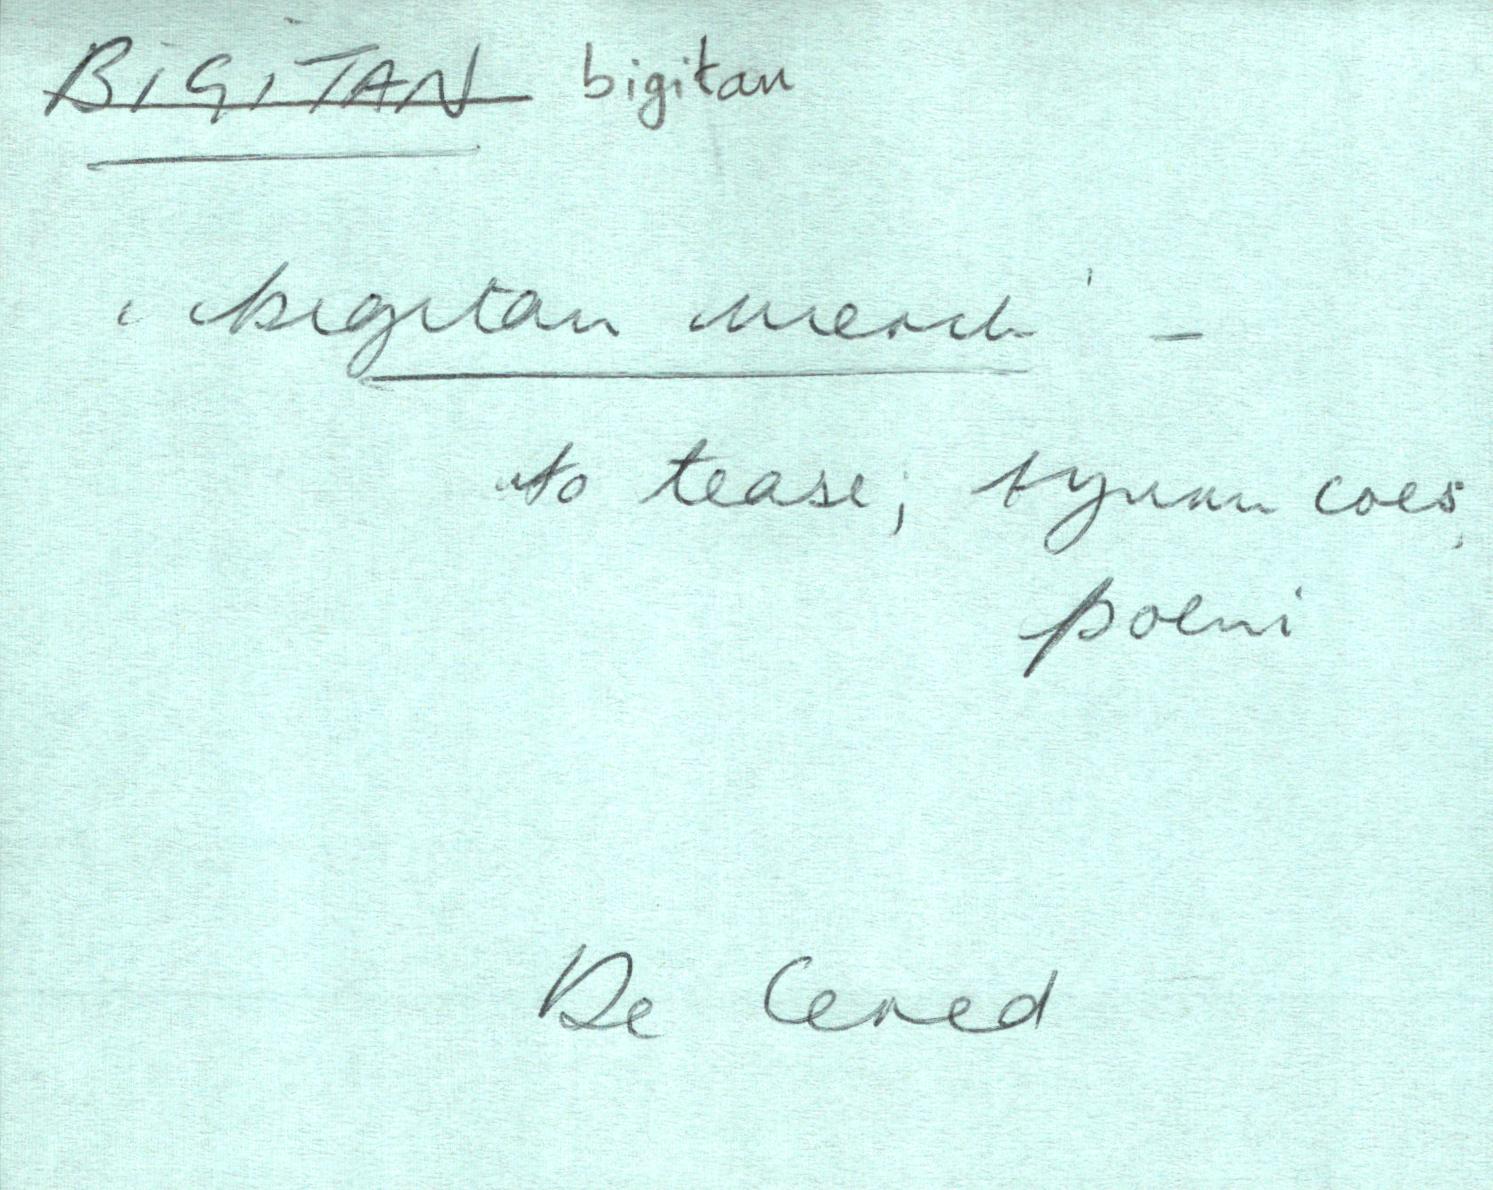 BIGITAN bigitan
'bigitan merch' –
to tease; tynnu coes,
poeni
De Cered